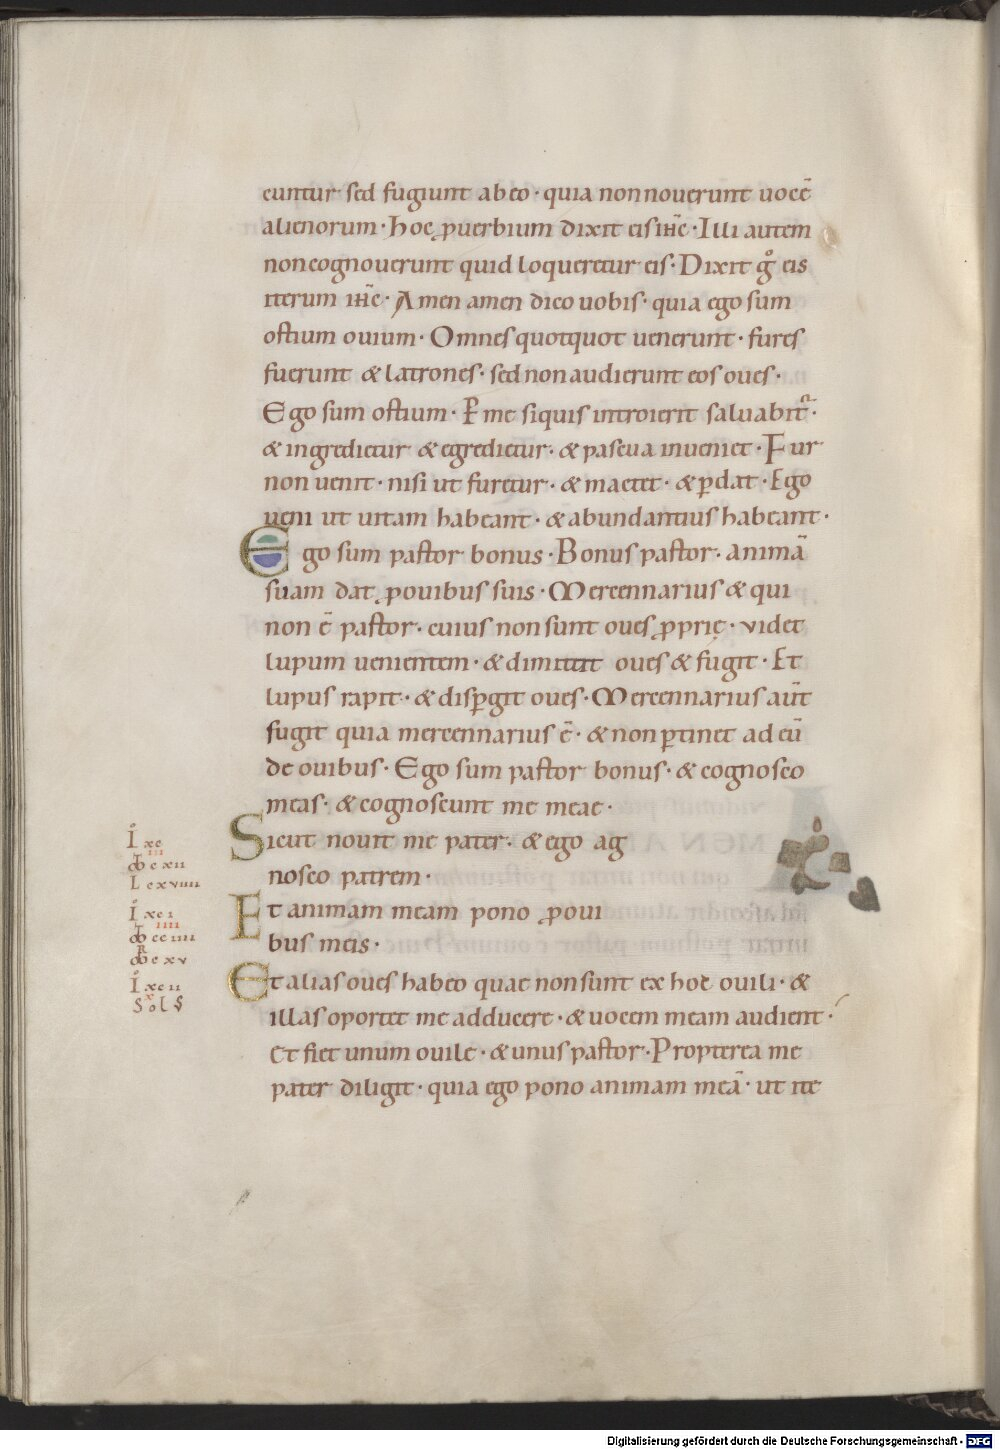 cuntur sed fugiunt ab eo · quia non nouerunt uocē
alienorum · hoc ꝓuerbium dixit eis ihc̄ · Illi autem
non cognouerunt quid loqueretur eis · Dixit gͦ eis
iterum ihc̄ · Amen amen dico uobis · quia ego sum
ostium ouium · Omnes quotquot uenerunt · fures
fuerunt & latrones · sed non audierunt eos oues ·
Ego sum ostium · P̲ me siquis introierit saluabit᷑ ·
& ingredietur & egredietur · & pascua inueniet · Fur
non uenit · nisi ut furetur · & mactet · & ꝑdat · Ego
ueni ut uitam habeant · & abundantius habeant ·
Ego sum pastor bonus · Bonus pastor · animā
suam dat ꝓ ouibus suis · Mercennarius & qui
non ē pastor · cuius non sunt oues ꝓprię · videt
lupum uenientem · & dimittit oues & fugit · Et
lupus rapit · & disꝑgit oues · Mercennarius aūt
fugit quia mercennarius ē · & non ꝑtinet ad eū
de ouibus · Ego sum pastor bonus · & cognosco
meas · & cognoscunt me meae ·
Sicut nouit me pater · & ego ag
nosco patrem ·
Et animam meam pono ꝓ oui
bus meis ·
Et alias oues habeo quae non sunt ex hoc ouili · &
illas oportet me adducere · & uocem meam audient ·
et fiet unum ouile · & unus pastor · Propterea me
pater diligit · quia ego pono animam meā · ut ite
Iͦ xc
III
c xii
L cxviiii
Iͦ xci
IIII
cciiii
c xv
Iͦ xcii
x
Sol S
Digitalisierung gefördert durch die Deutsche Forschungsgemeinschaft - DFG